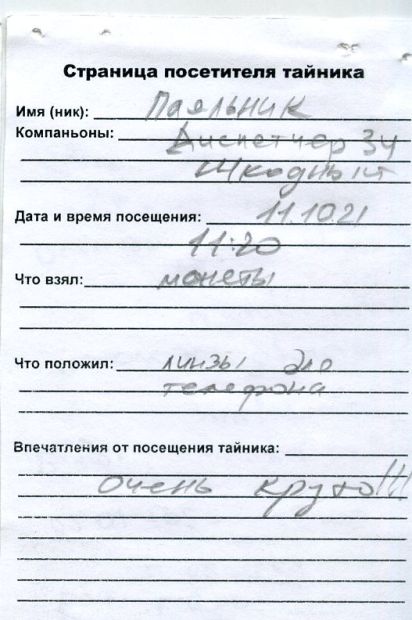 Страница посетителя тайника
Имя (ник): Паяльник
Компаньоны: Диспетчер 34
Шкодный
Дата и время посещения: 11.10.21
11:20
Что взял: монеты
Что положил: линзы для
телефона
Впечатления от посещения тайника:
Очень круто!!!